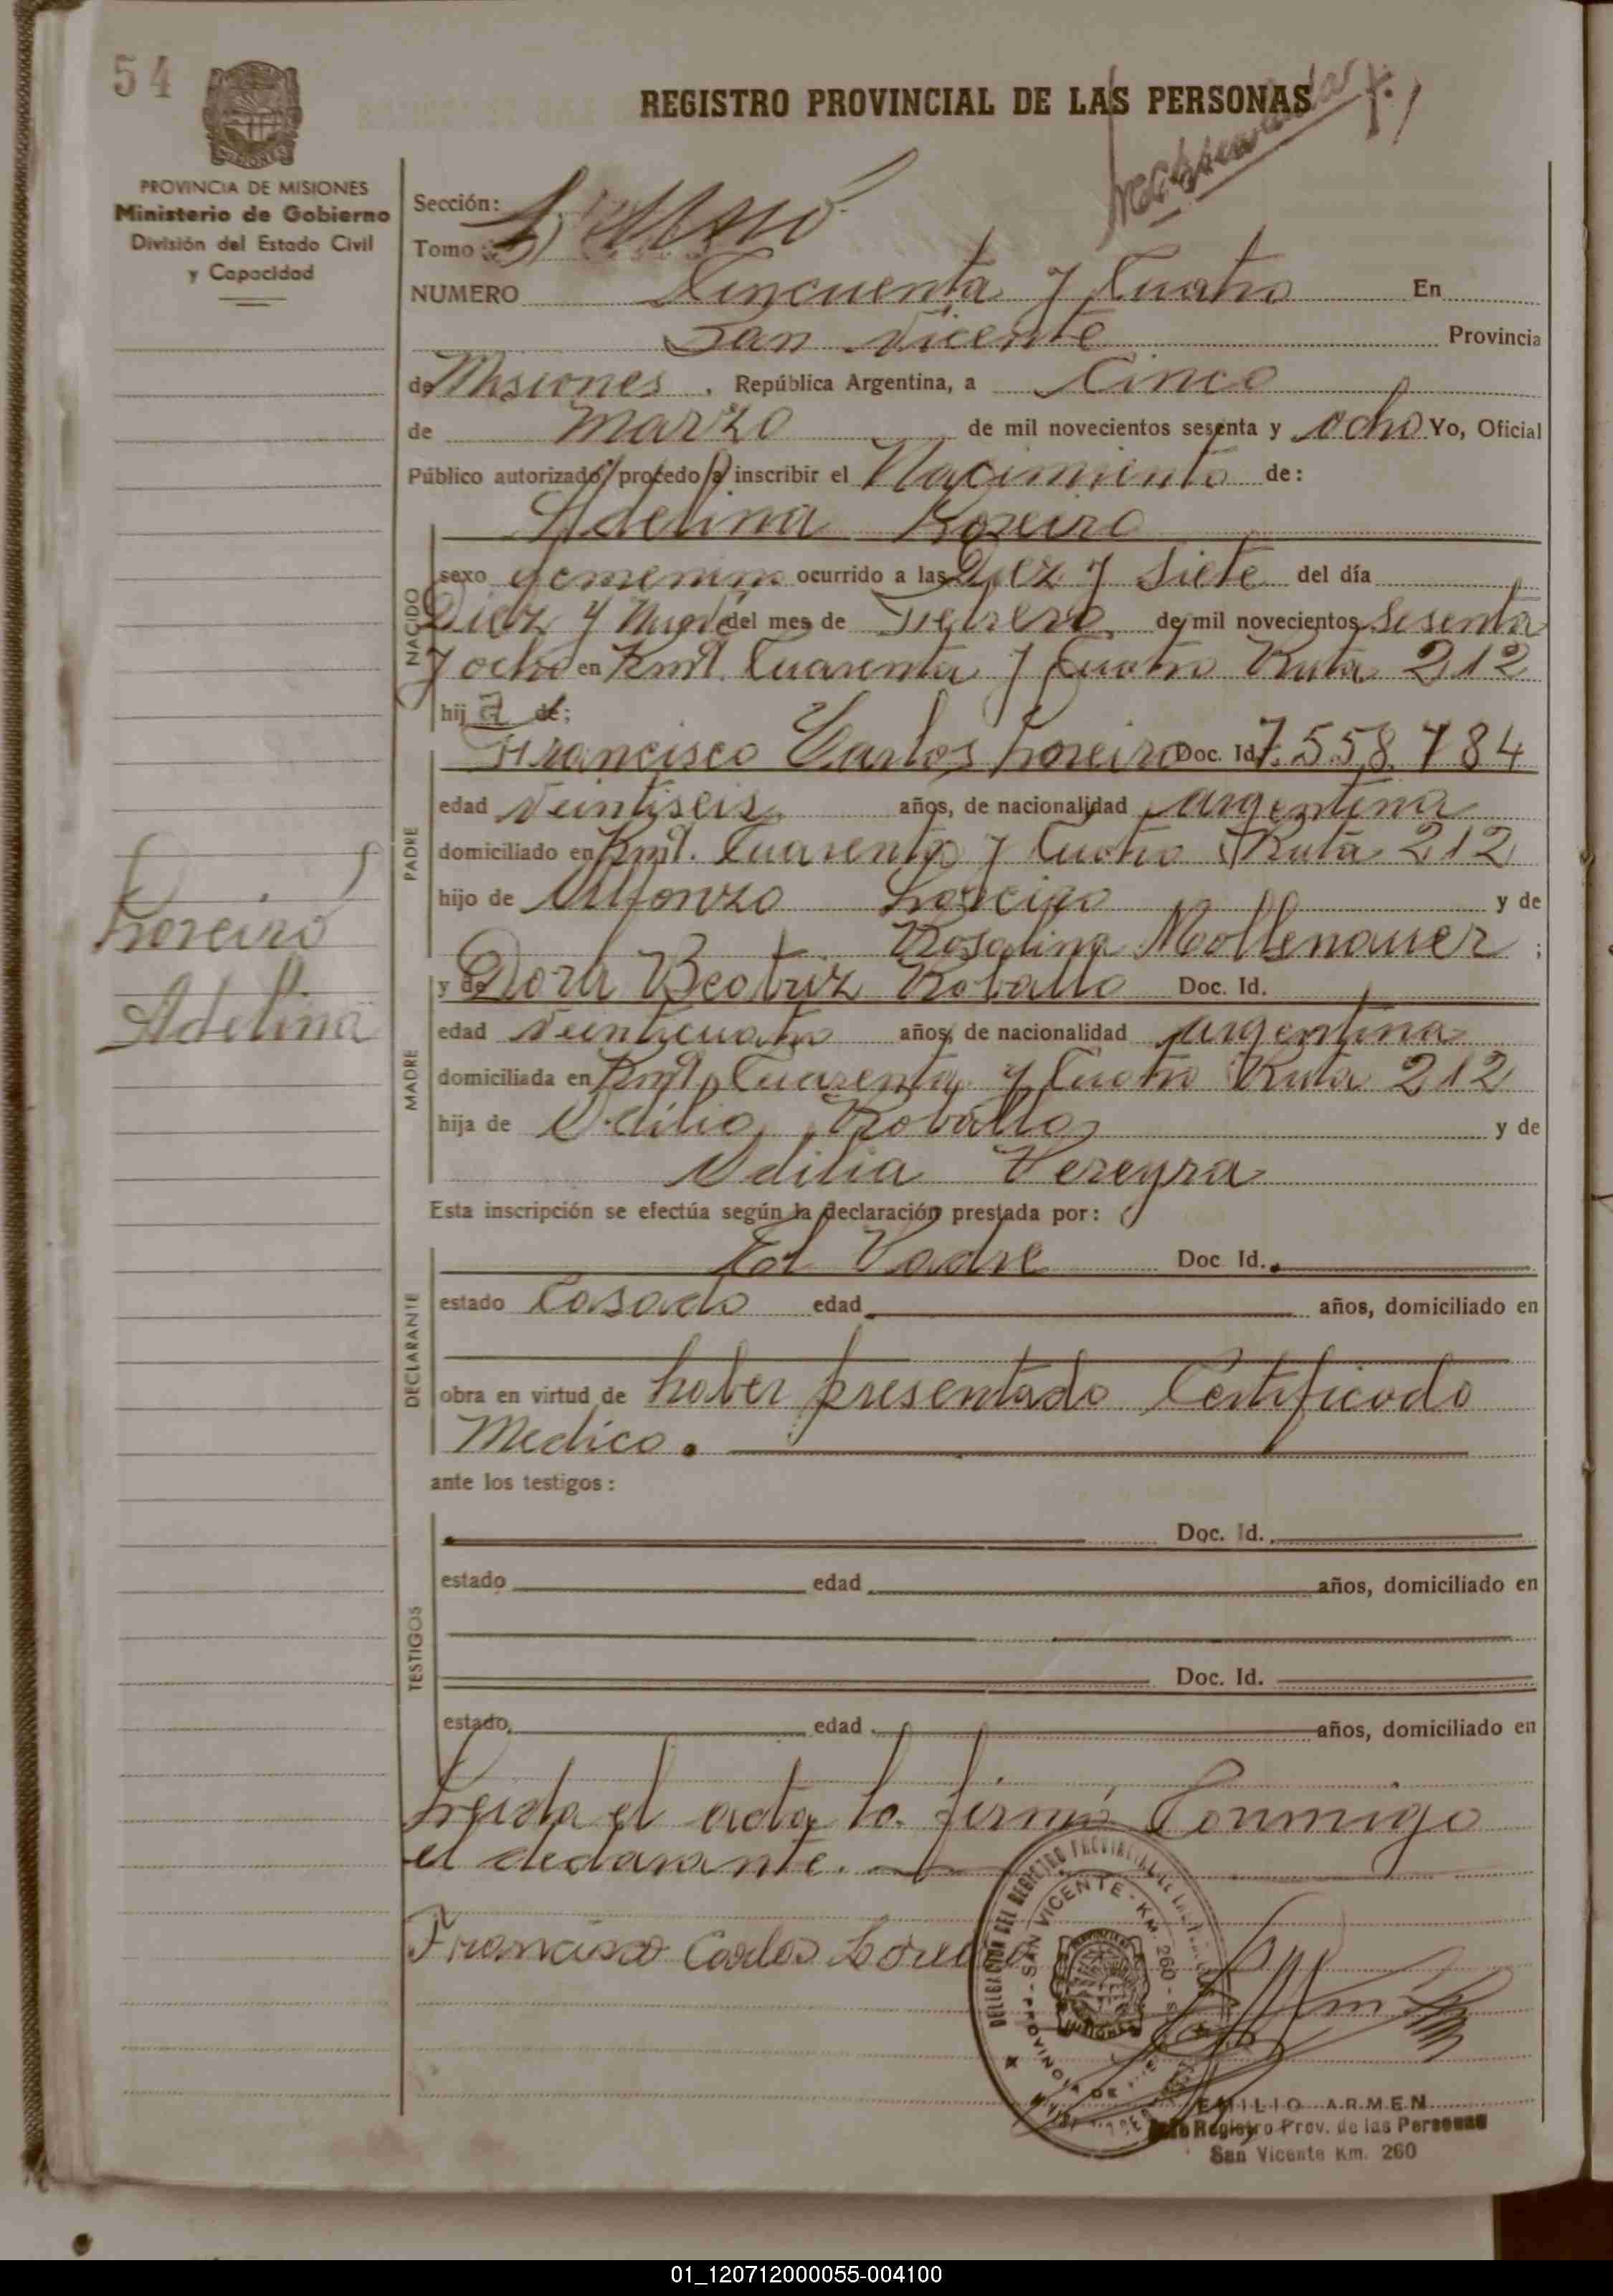 54
REGISTRO PROVINCIAL DE LAS PERSONAS
PROVINCIA DE MISIONES
Ministerio de Gobierno
División del Estado Civil
y Capacidad
Sección:
Tomo
NUMERO Cincuenta y Cuatro En
San Vicente Provincia
de Misiones. República Argentina, a Cinco
de Marzo de mil novecientos sesenta y ocho Yo, Oficial
Público autorizado, procedo a inscribir el Nacimiento de:
Adelina Loreiro
NACIDO
sexo femenino ocurrido a las Diez y Siete del día
Diez y Nueve del mes de Febrero de mil novecientos Sesenta
y ocho en Kmt. Cuarenta y Cuatro Ruta 212
hija de;
PADRE
Francisco Carlos Loreiro Doc. Id. 7.558.784
edad Veintiseis años, de nacionalidad Argentina
domiciliado en Kmt. Cuarenta y Cuatro Ruta 212
hijo de Alfonzo Loreiro y de
Rosalina Mollenauer ;
Loreiro
Adelina
MADRE
y de Dora Beatriz Roballo Doc. Id.
edad Veinticuatro años, de nacionalidad Argentina
domiciliada en Kmt, Cuarenta y Cuatro Ruta 212
hija de Odilio Roballo y de
Odilia Pereyra
Esta inscripción se efectúa según la declaración prestada por:
DECLARANTE
El Padre Doc. Id.
estado Casado edad años, domiciliado en
obra en virtud de haber presentado Certificado
Medico.
ante los testigos:
TESTIGOS
Doc. Id.
estado edad años, domiciliado en
Doc. Id.
estado edad años, domiciliado en
Leida el acta la firmó Conmigo
el declarante.
Francisco Carlos Loreiro
DELEGACIÓN DEL REGISTRO PROVINCIAL DE LAS
SAN VICENTE - KM. 260 -
PROVINCIA DE
MISIONES
EMILIO ARMEN
Registro Prov. de las Personas
San Vicente Km. 260
01_120712000055-004100